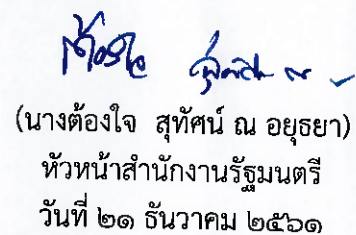 (นางต้องใจ สุทัศน์ ณ อยุธยา)
หัวหน้าสำนักงานรัฐมนตรี
วันที่ ๒๑ ธันวาคม ๒๕๖๑